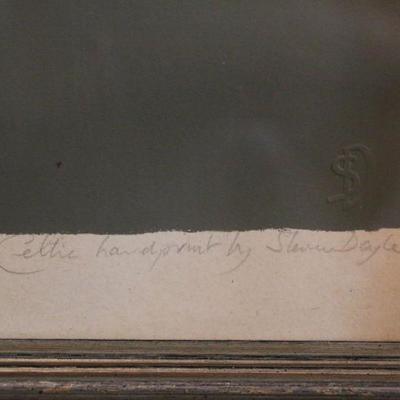 SD
Celtic handprint by Steven Doyle